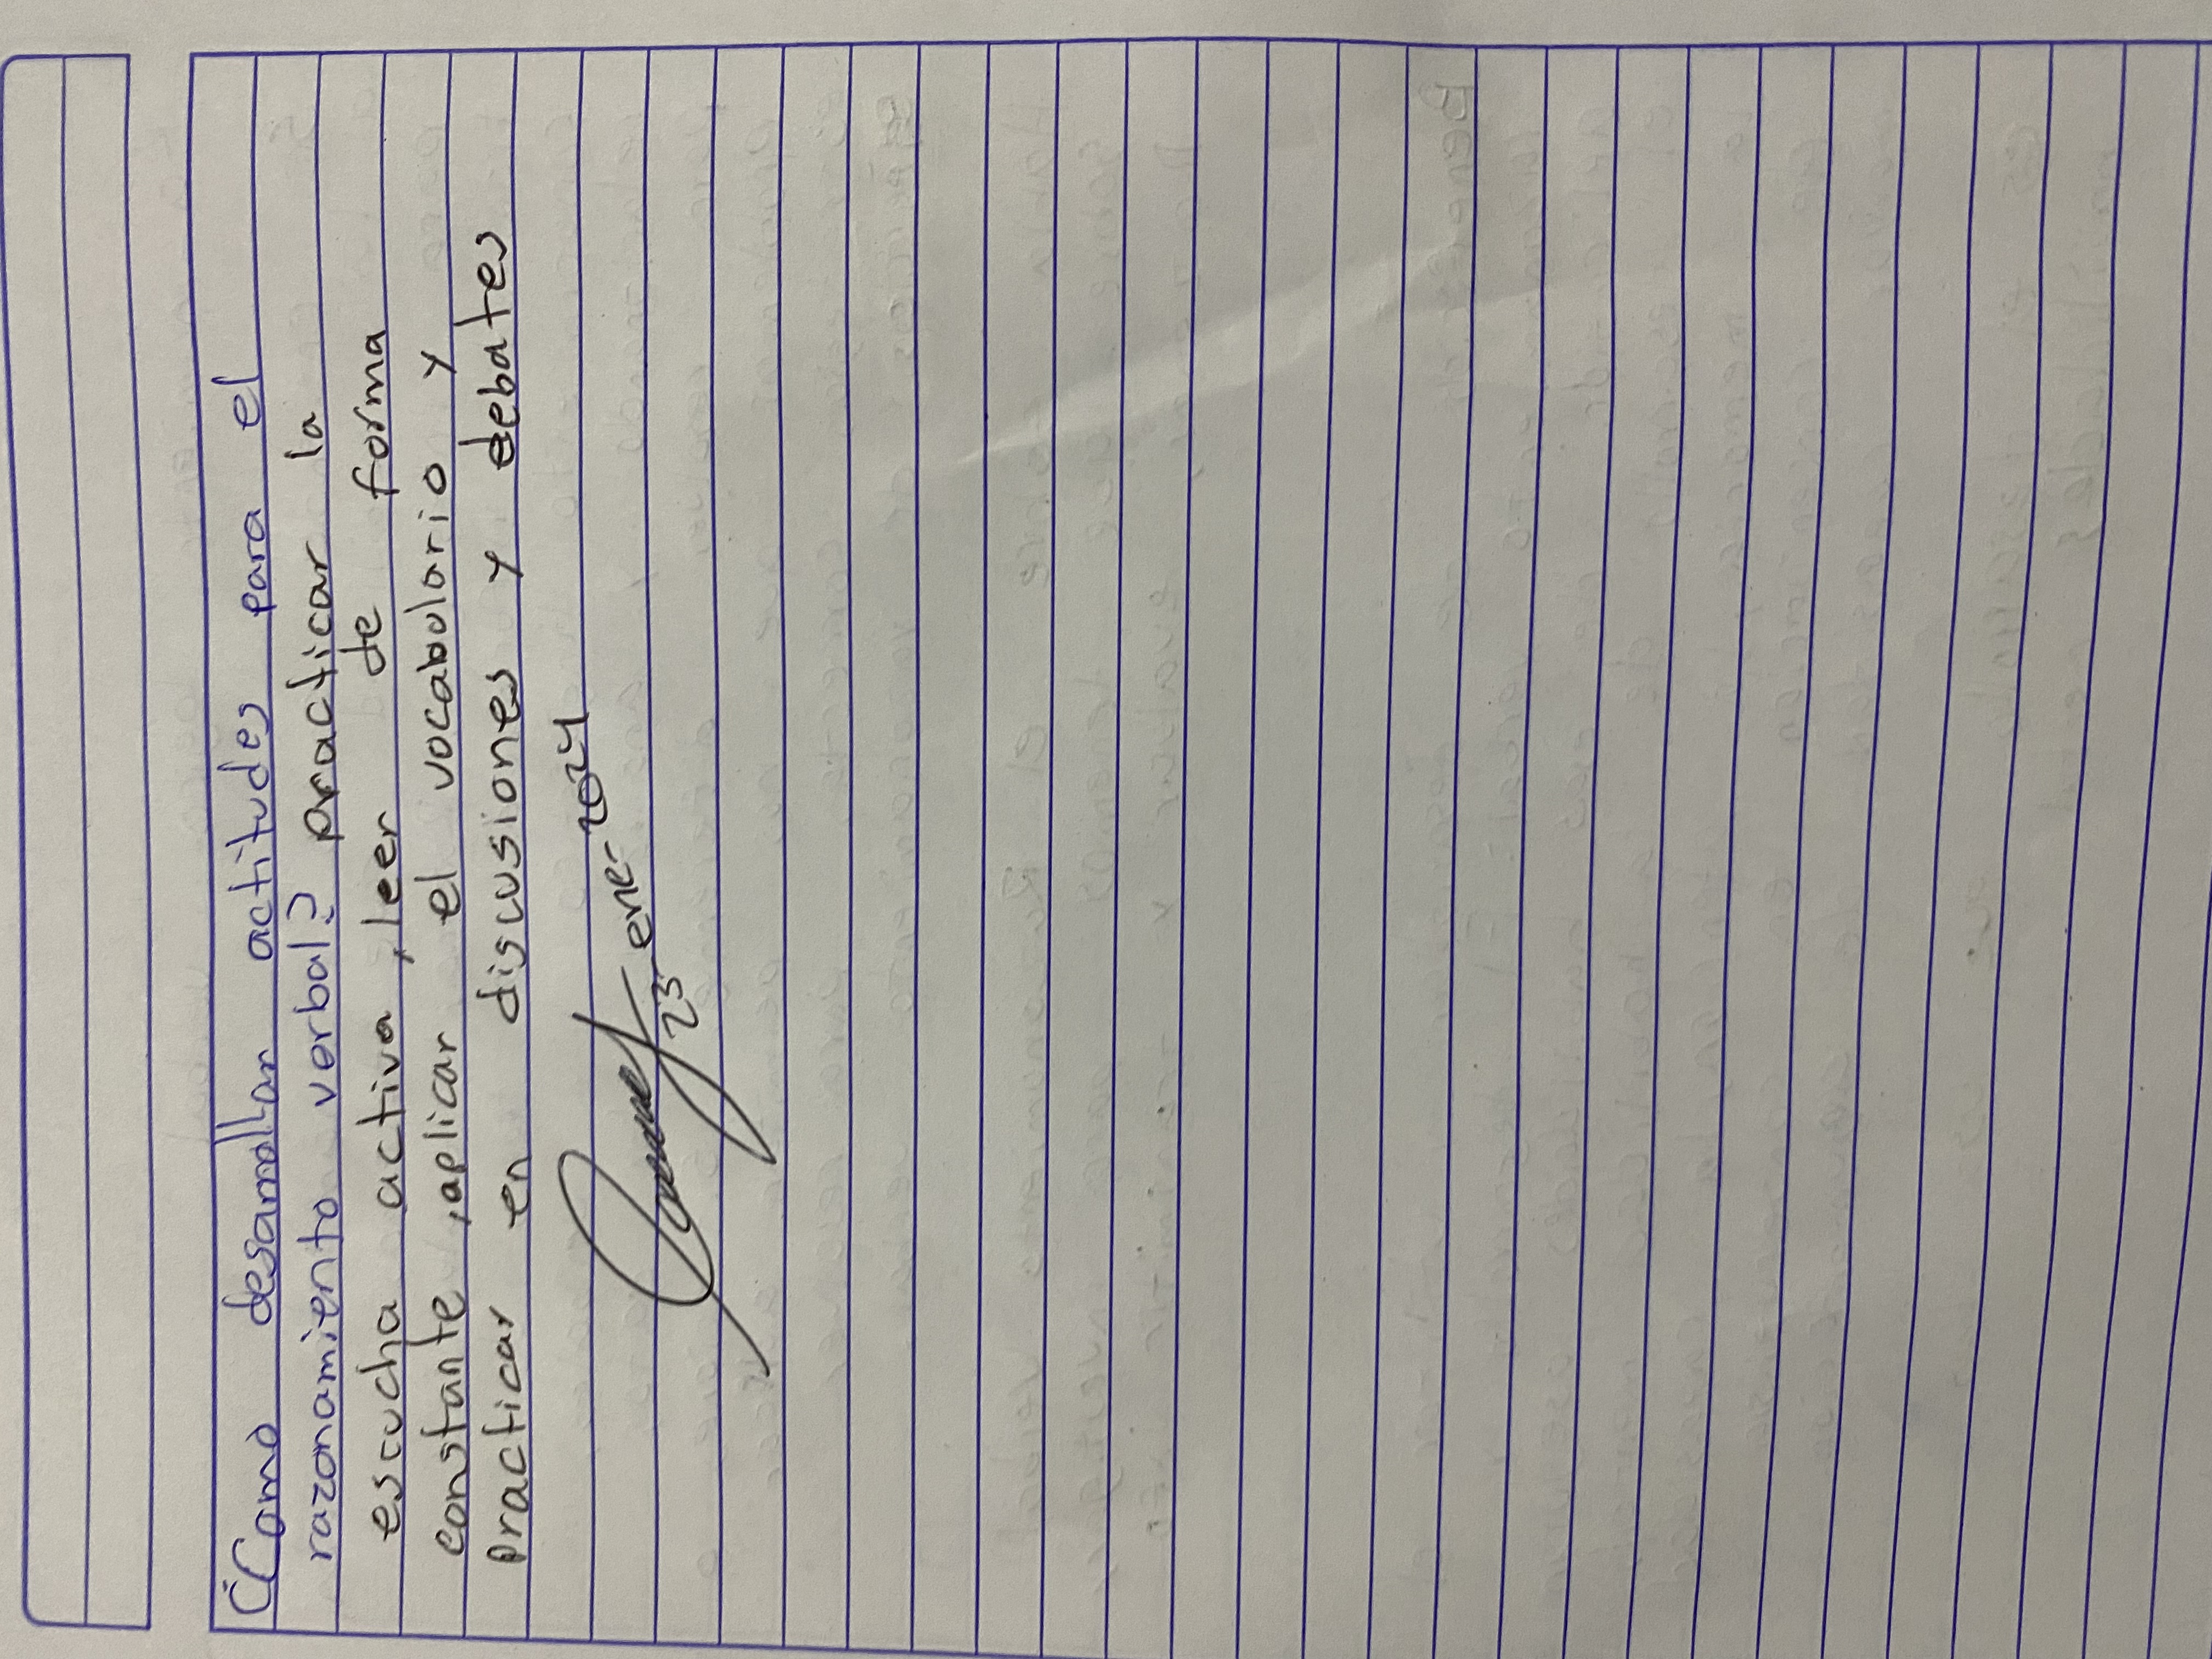 ¿Como desarrollar actitudes para el
razonamiento verbal? practicar la
escucha activa, leer de forma
constante, aplicar el vocabulario y
practicar en discusiones y debates
23-ene-2024